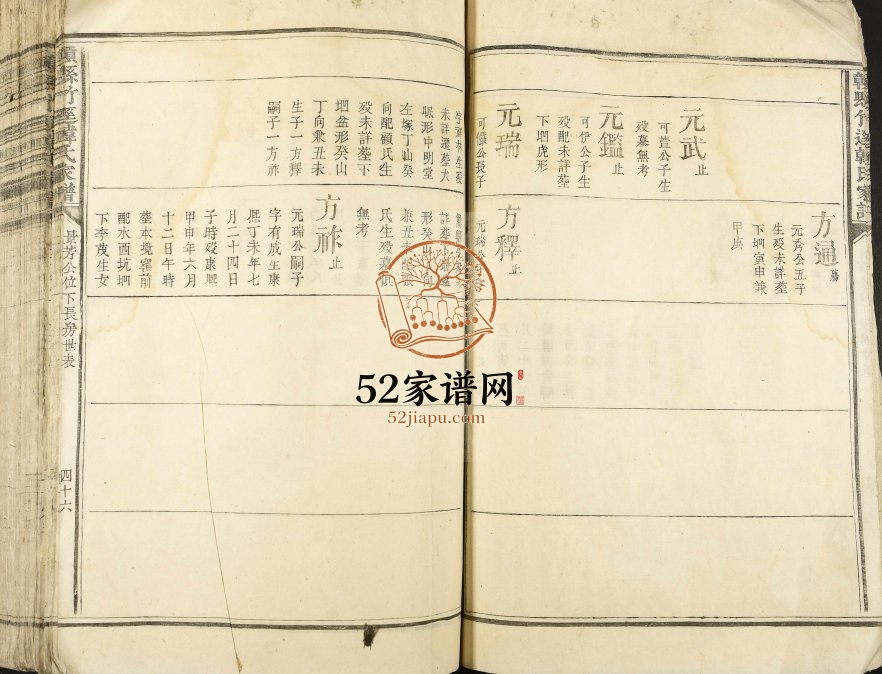 元武止
可萱公子生
殁墓無考
元鑑止
可伊公子生
殁配未詳塟
下垇虎形
元瑞
可儀公長子
方通
元秀公五子
生殁未詳塟
下垇寅申兼
甲庚
方釋止
元瑞公
未詳遷塟犬
眠形中明堂
左塚丁山癸
向配顧氏生
殁未詳塟下
垇盆形癸山
丁向兼丑未
生子一方釋
嗣子一方祚
氏生殁墓俱
無考
方祚止
元瑞公嗣子
字有成生康
熙丁未年七
月二十四日
子時殁康熙
甲申年六月
十二日午時
塟本境窰前
配水西坑垇
下李茂生女
氏家譜
景芳公位下長房世表
四十六
52家谱网
52jiapu.com